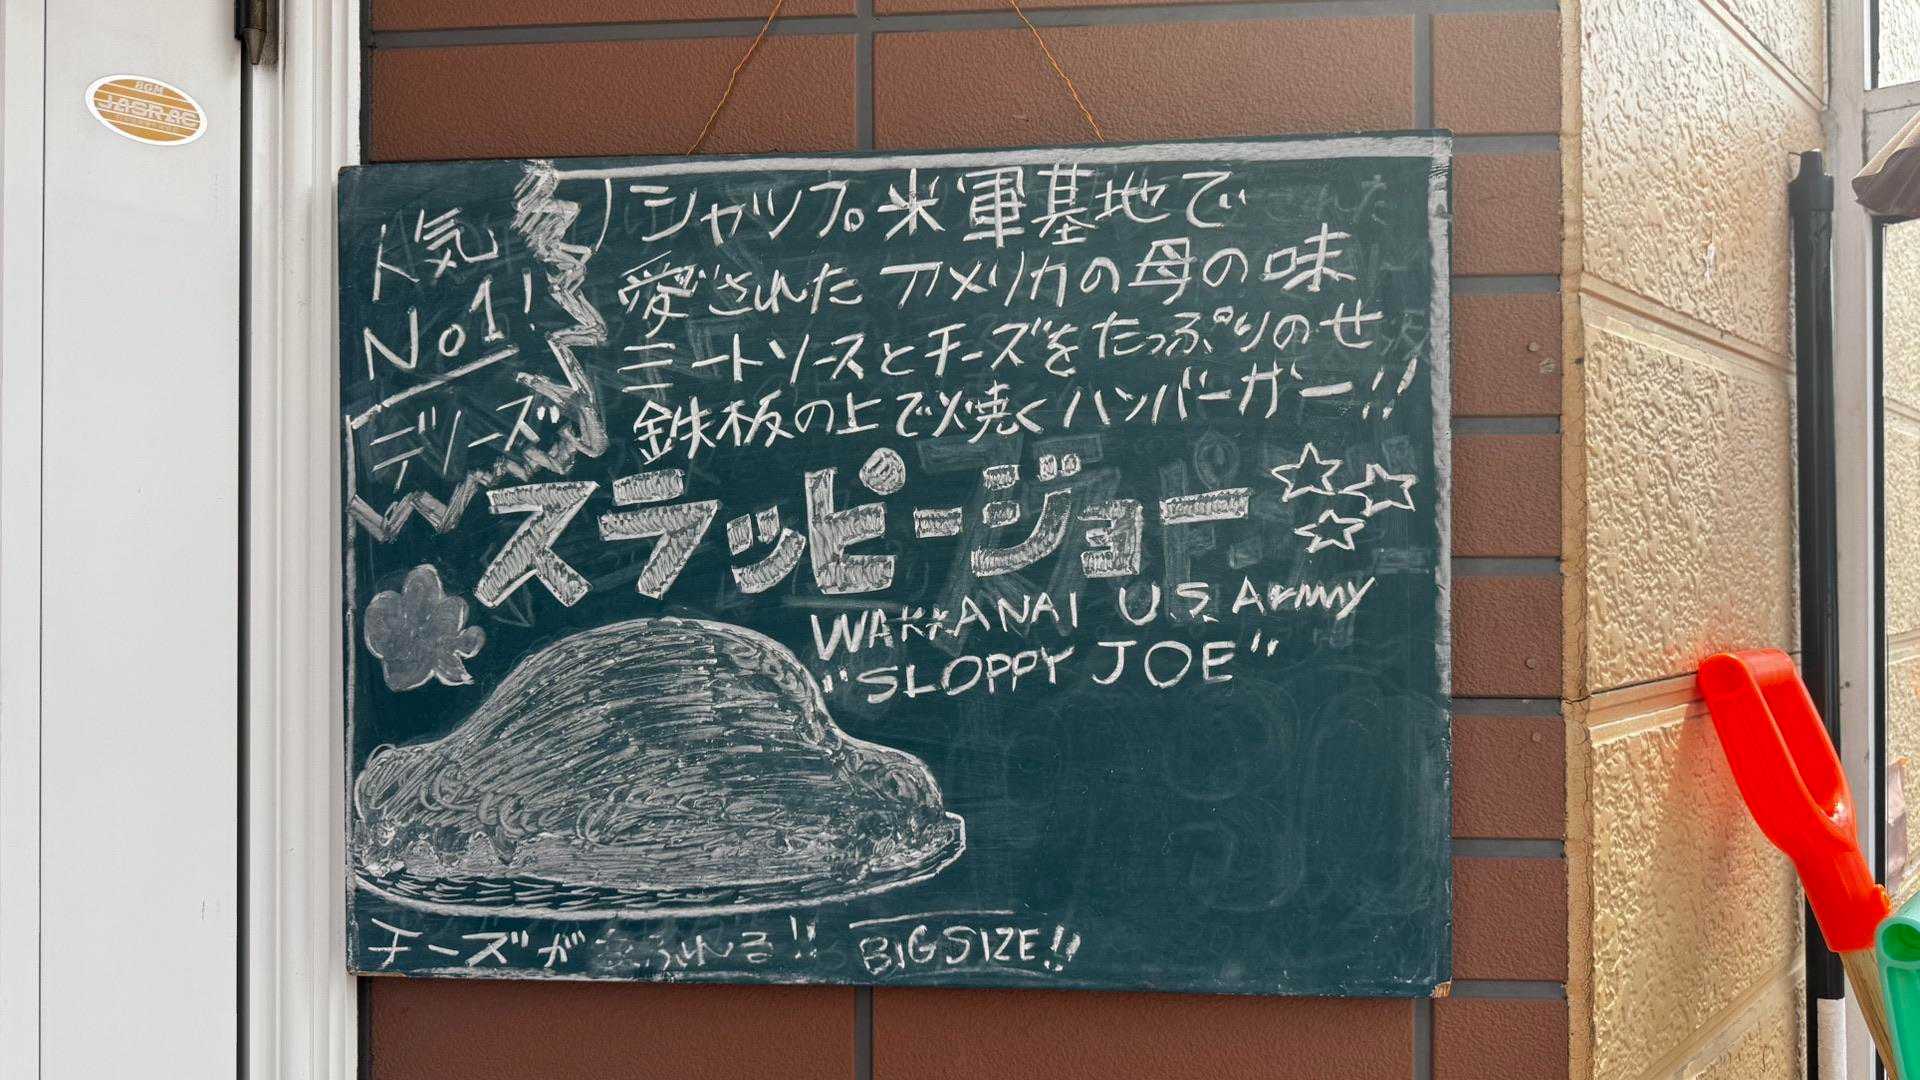 BGM
JASRAC
人気
No1!
シリーズ
シャップ。米軍基地で
愛されたアメリカの母の味
ミートソースとチーズをたっぷりのせ
鉄板の上で焼くハンバーガー!!
スラッピージョー
WAKKANAI U.S. Army
"SLOPPY JOE"
チーズがあふれる!! BIG SIZE!!